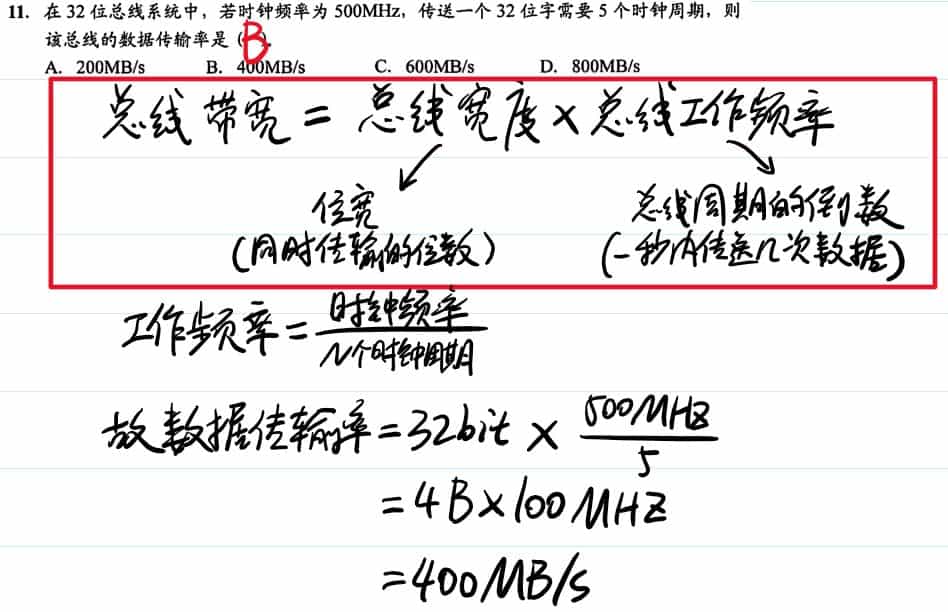 11. 在 32 位总线系统中，若时钟频率为 500MHz，传送一个 32 位字需要 5 个时钟周期，则
该总线的数据传输率是 ( B ).
A. 200MB/s B. 400MB/s C. 600MB/s D. 800MB/s
总线带宽 = 总线宽度 × 总线工作频率
位宽 总线周期的倒数
(同时传输的位数) (一秒内传送几次数据)
工作频率 = 时钟频率 / N个时钟周期
故数据传输率 = 32bit × 500MHZ / 5
= 4B × 100MHZ
= 400MB/s